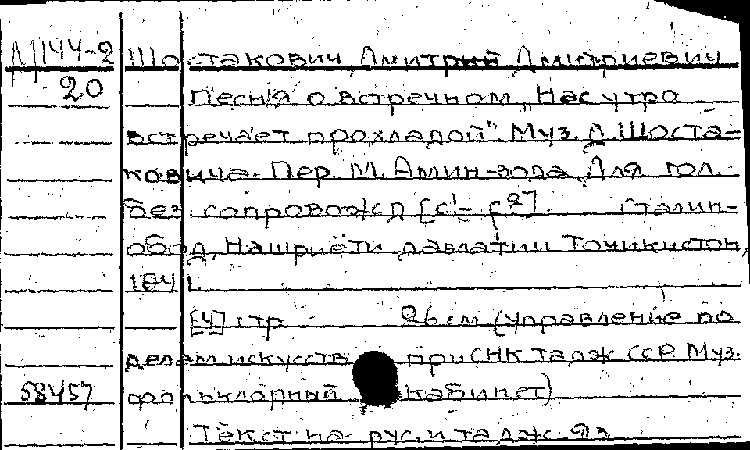 М 144-2 Шостакович, Дмитрий Дмитриевич
20 Песня о встречном „Нас утро
встречает прохладой". Муз. Д. Шоста-
ковича. Пер. М. Амин-зода. Для гол.
без сопровожд [c¹- f²]. Сталин-
обод, Нашриёти давлатии Точикистон,
1941.
[4] стр 26 см (Управление по
делам искусств при СНК Тадж ССР. Муз.
58457 фольклорный кабинет)
Текст на рус. и тадж. яз